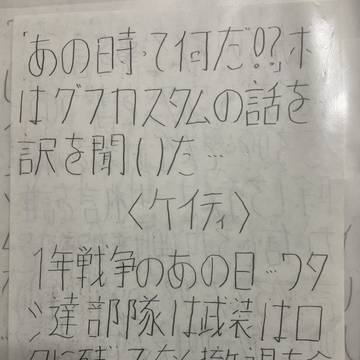 「あの時って何だ!?」ボ
はグフカスタムの話を
訳を聞いた…
〈ケイティ〉
1年戦争のあの日…ワタ
シ達部隊は武装はロ